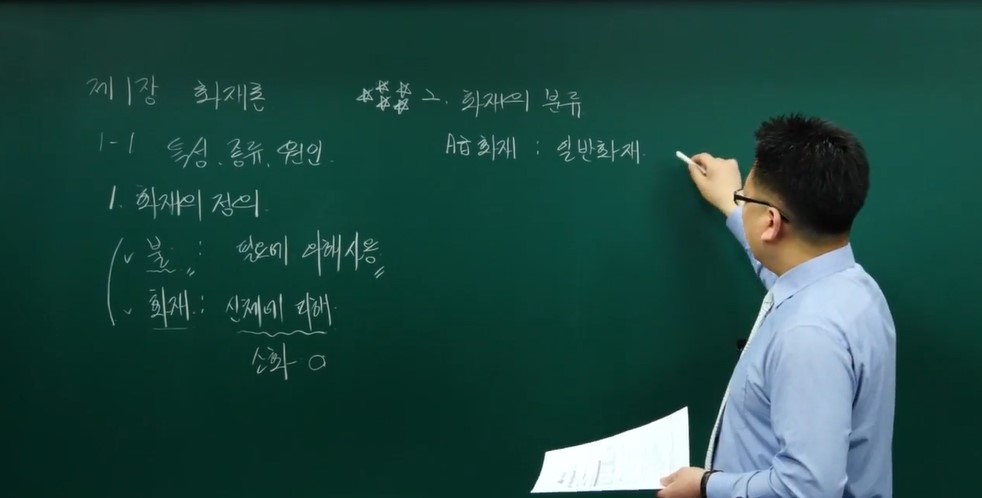 제1장 화재론
1-1 특성, 종류, 원인.
1. 화재의 정의.
불 : 필요에 의해 사용
화재 : 신체에 피해.
소화 O
2. 화재의 분류
A급 화재 : 일반화재.